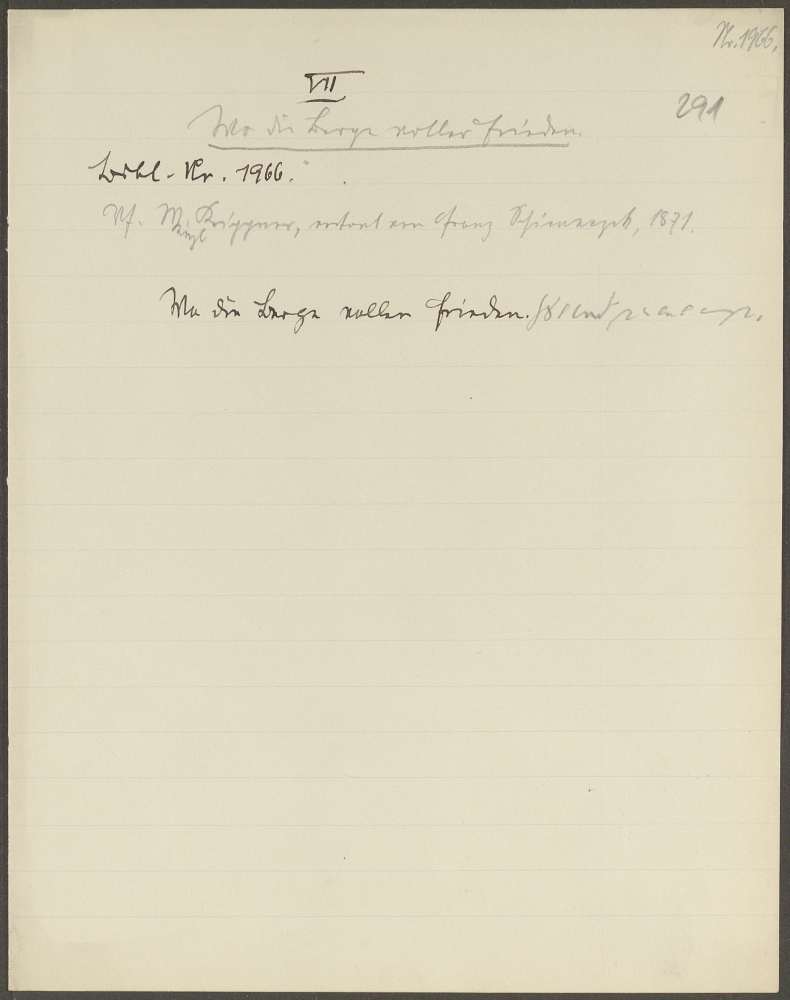 Nr. 1966.
VII
291
Wo die Berge voller Frieden.
Nr. 1966.
Vf. Krippner, vertont von Franz 1871.
Wo die Berge voller Frieden.